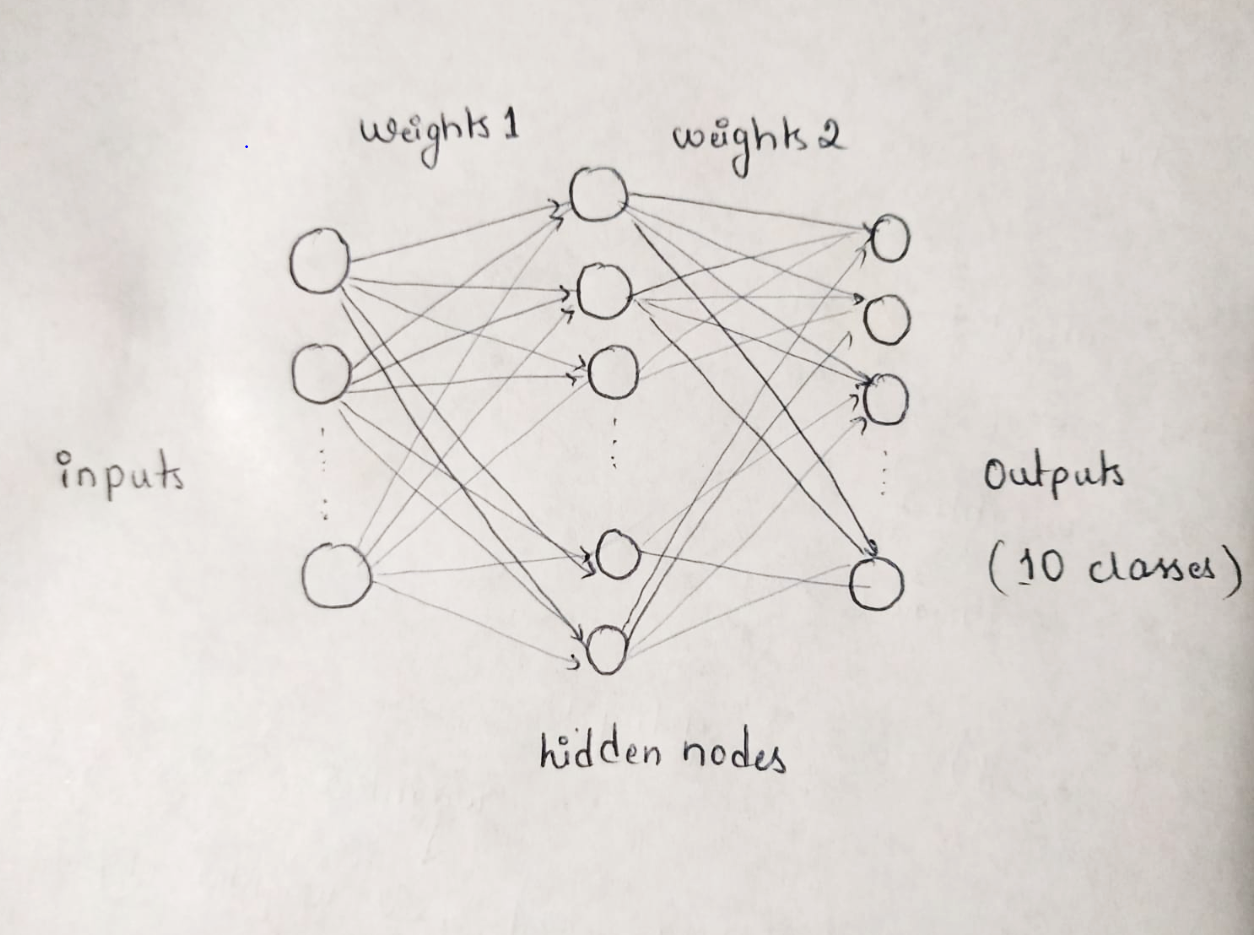 weights 1
weights 2
inputs
outputs
(10 classes)
hidden nodes